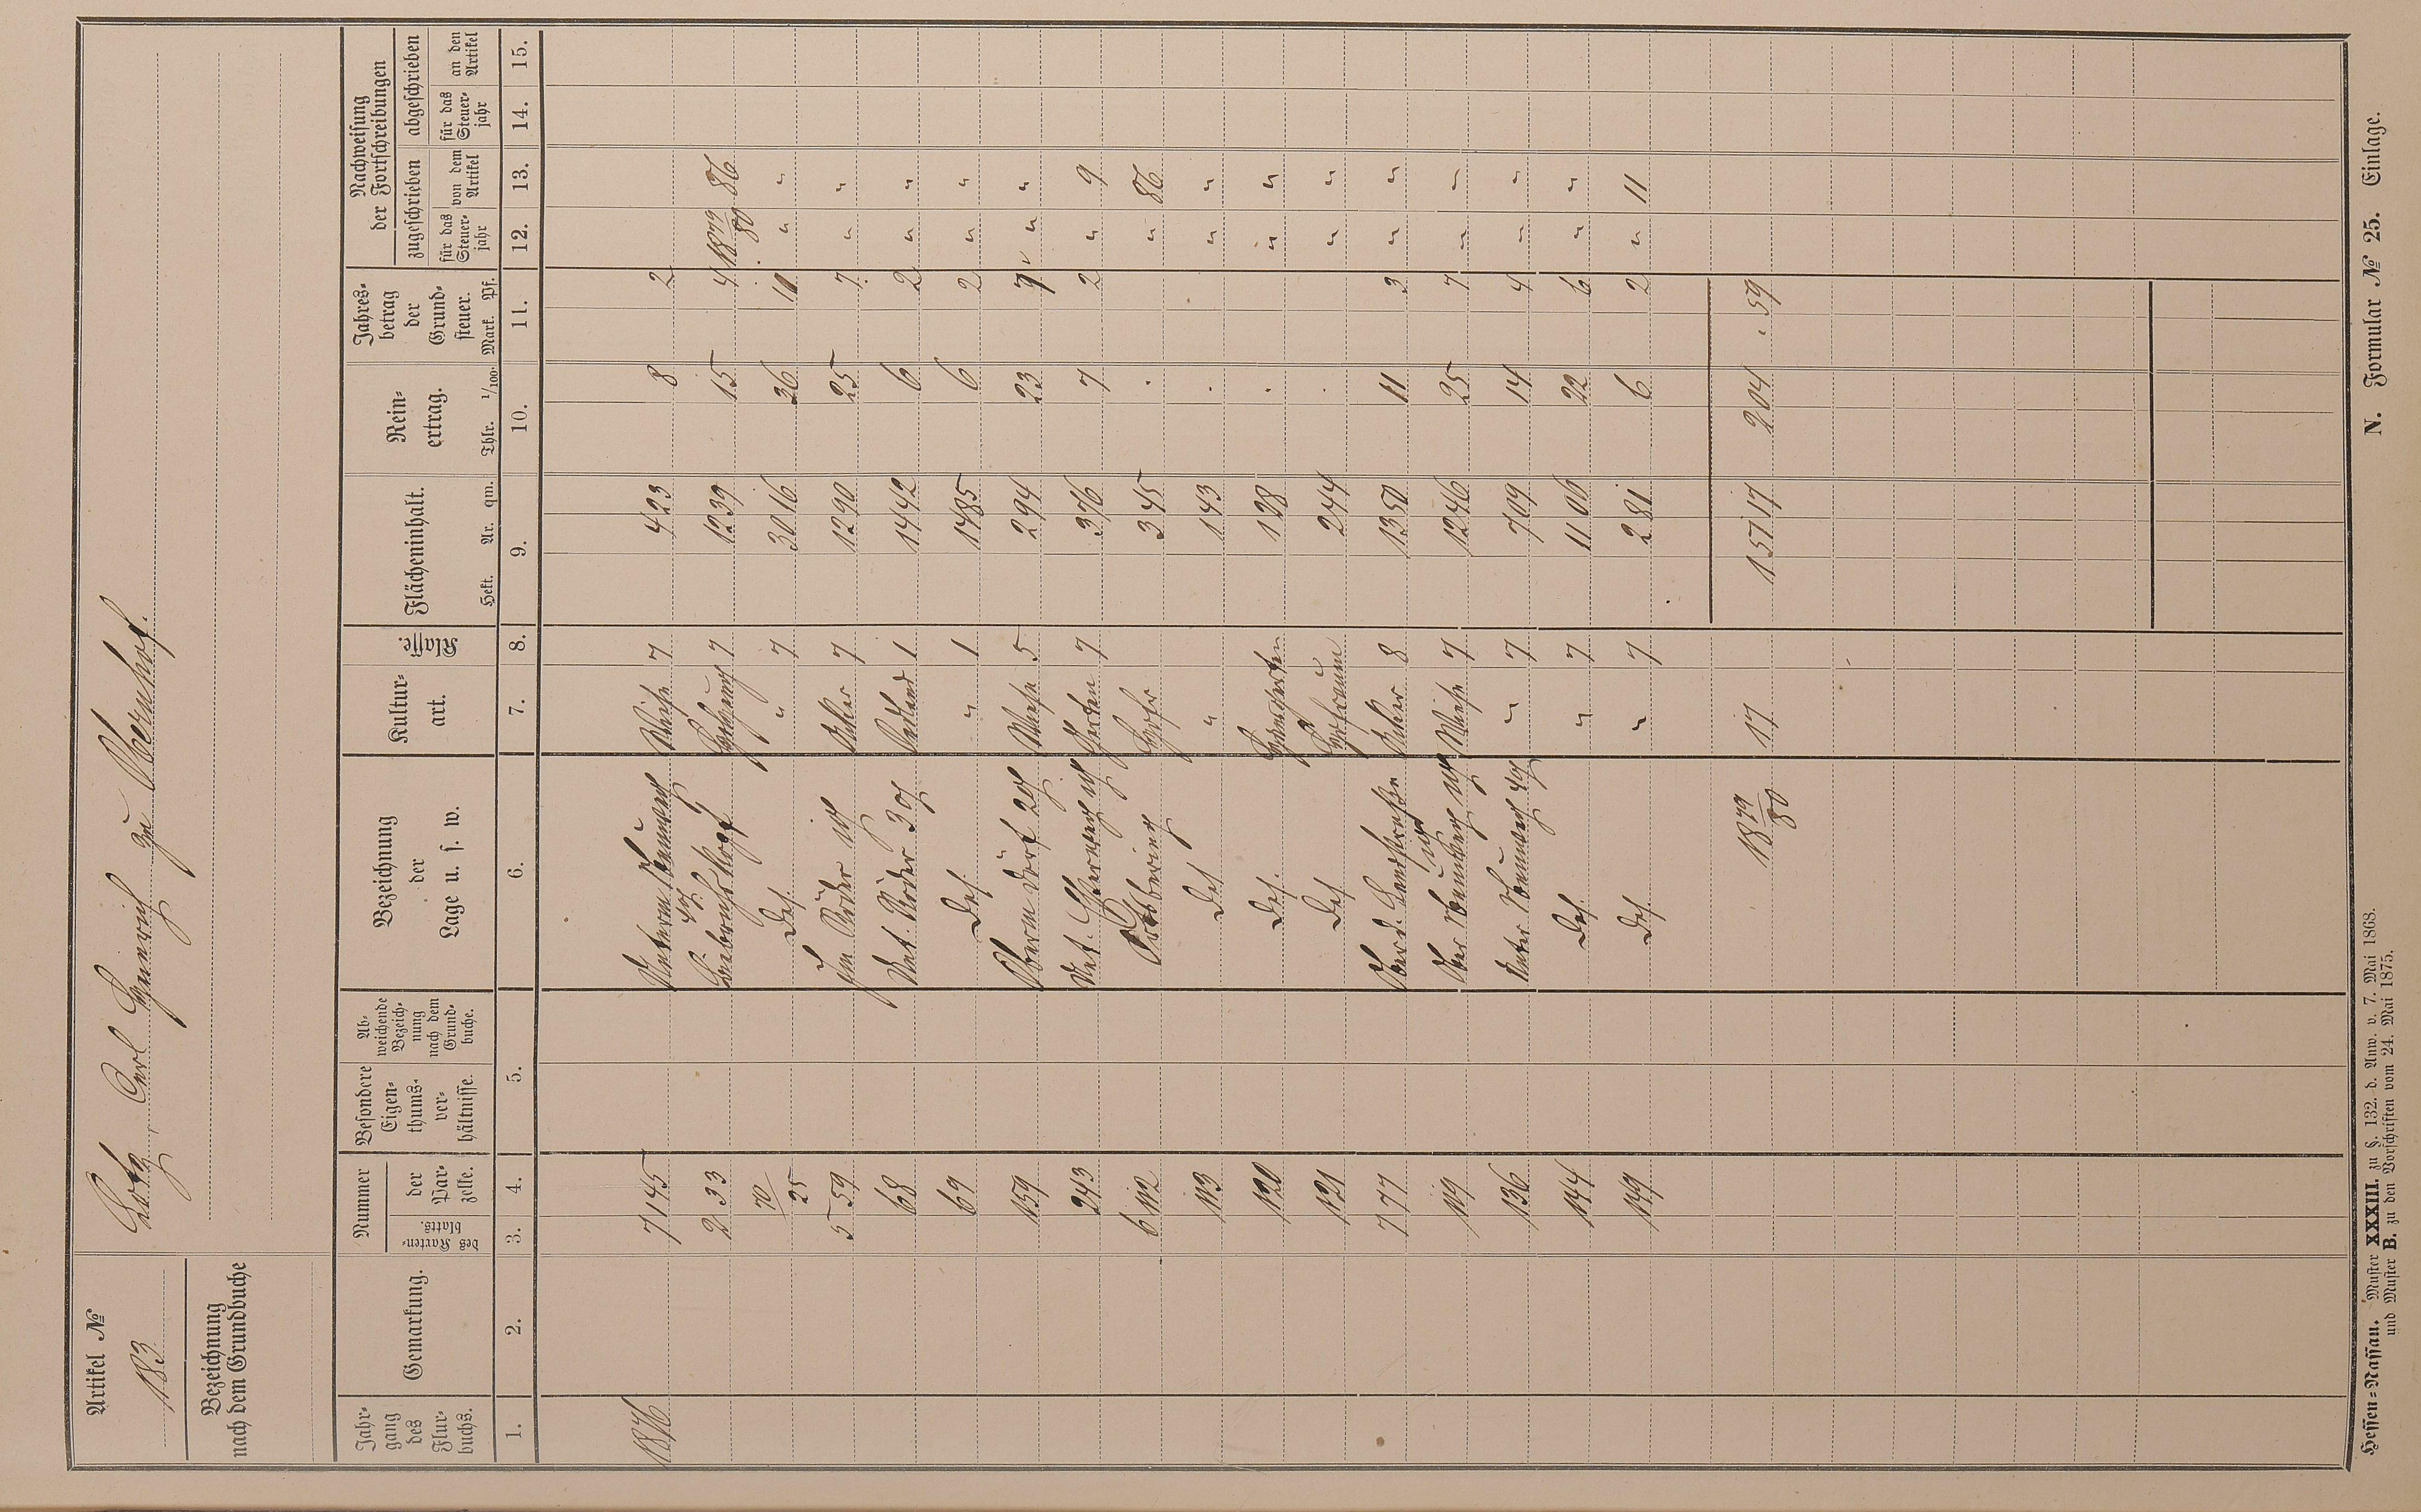 Artikel №
183.
Bezeichnung
nach dem Grundbuche
Lotz, Carl Heinrich zu Obernhof.
Jahrgang des Flurbuchs.
Gemarkung.
Nummer
des Kartenblatts.
der Parzelle.
Besondere Eigenthumsverhältnisse.
Abweichende Bezeichnung nach dem Grundbuche.
Bezeichnung der Lage u. s. w.
Kulturart.
Klasse.
Flächeninhalt.
Hekt. Ar. qm.
Reinertrag.
Thlr. 1/100.
Jahresbetrag der Grundsteuer.
Mark. Pf.
Nachweisung der Fortschreibungen
zugeschrieben
für das Steuerjahr
von dem Artikel
abgeschrieben
für das Steuerjahr
an den Artikel
1. 2. 3. 4. 5. 6. 7. 8. 9. 10. 11. 12. 13. 14. 15.
1876 7 145 Wiese 7 4 23 8 2
2 33 7 12 39 15 4 1879/80 86
70/25 Des. " 7 30 16 36 11 " "
5 59 Im Röder Acker 7 12 90 25 7 " "
68 Unt. Röder 3 1 14 42 6 2 " "
69 Des. " 1 14 85 6 2 " "
159 Oberm Dorf 2 Wiese 5 2 94 23 7 " "
243 Garten 7 3 76 7 2 " 9
6 112 3 45 . " 86
113 Des " 1 43 . " "
120 Des. Hausgarten 1 28 . " "
121 Des Hofraum 2 44 . " "
7 77 Ober d. Landstraße Acker 8 13 50 11 3 " "
119 Wiese 7 12 46 25 7 " "
136 " 7 7 09 14 4 " "
144 Des. " 7 11 06 22 6 " "
149 Des. " 7 2 81 6 2 " 11
1879/80 17 1 57 17 2 04 . 59
Hessen-Nassau. Muster XXXIII. zu §. 132. d. Anw. v. 7. Mai 1868.
und Muster B. zu den Vorschriften vom 24. Mai 1875.
N. Formular № 25. Einlage.